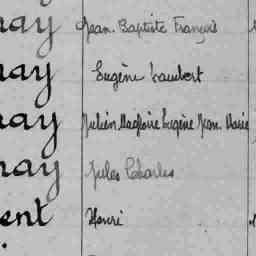 nay Jean Baptiste François
nay Eugène Lambert
nay Julien Magloire Eugène Jean Marie
nay Jules Charles
ent Henri